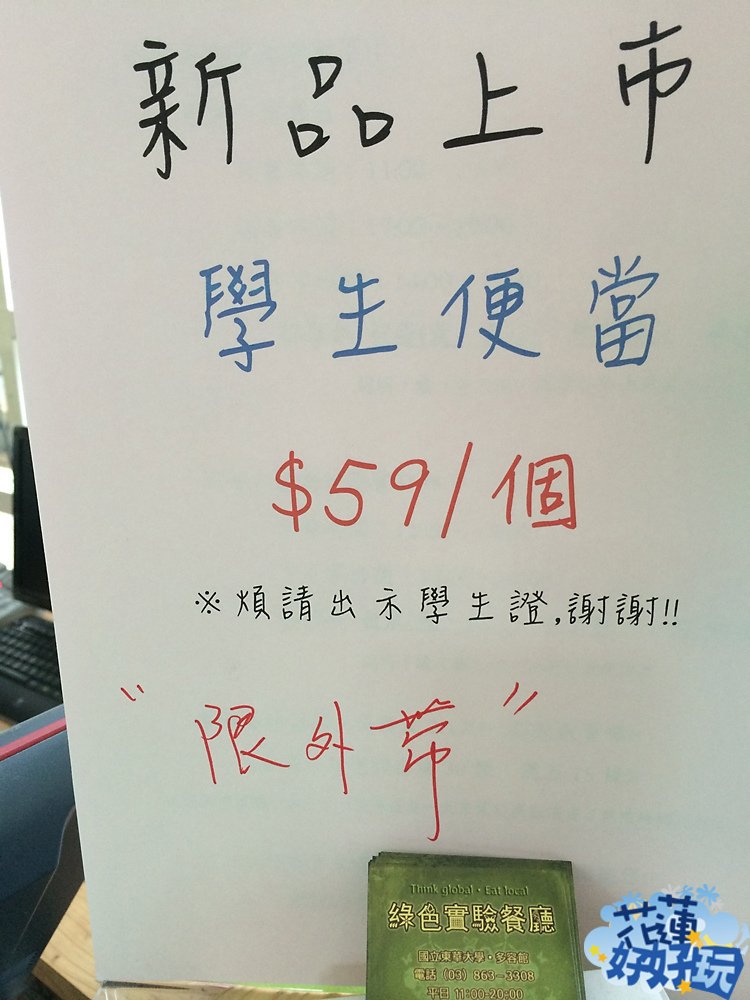 新品上市
學生便當
$59/個
※煩請出示學生證,謝謝!!
"限外帶"
Think global・Eat local
綠色實驗餐廳
國立東華大學・多容館
電話 (03) 863-3308
平日 11:00-20:00
花蓮
好好玩